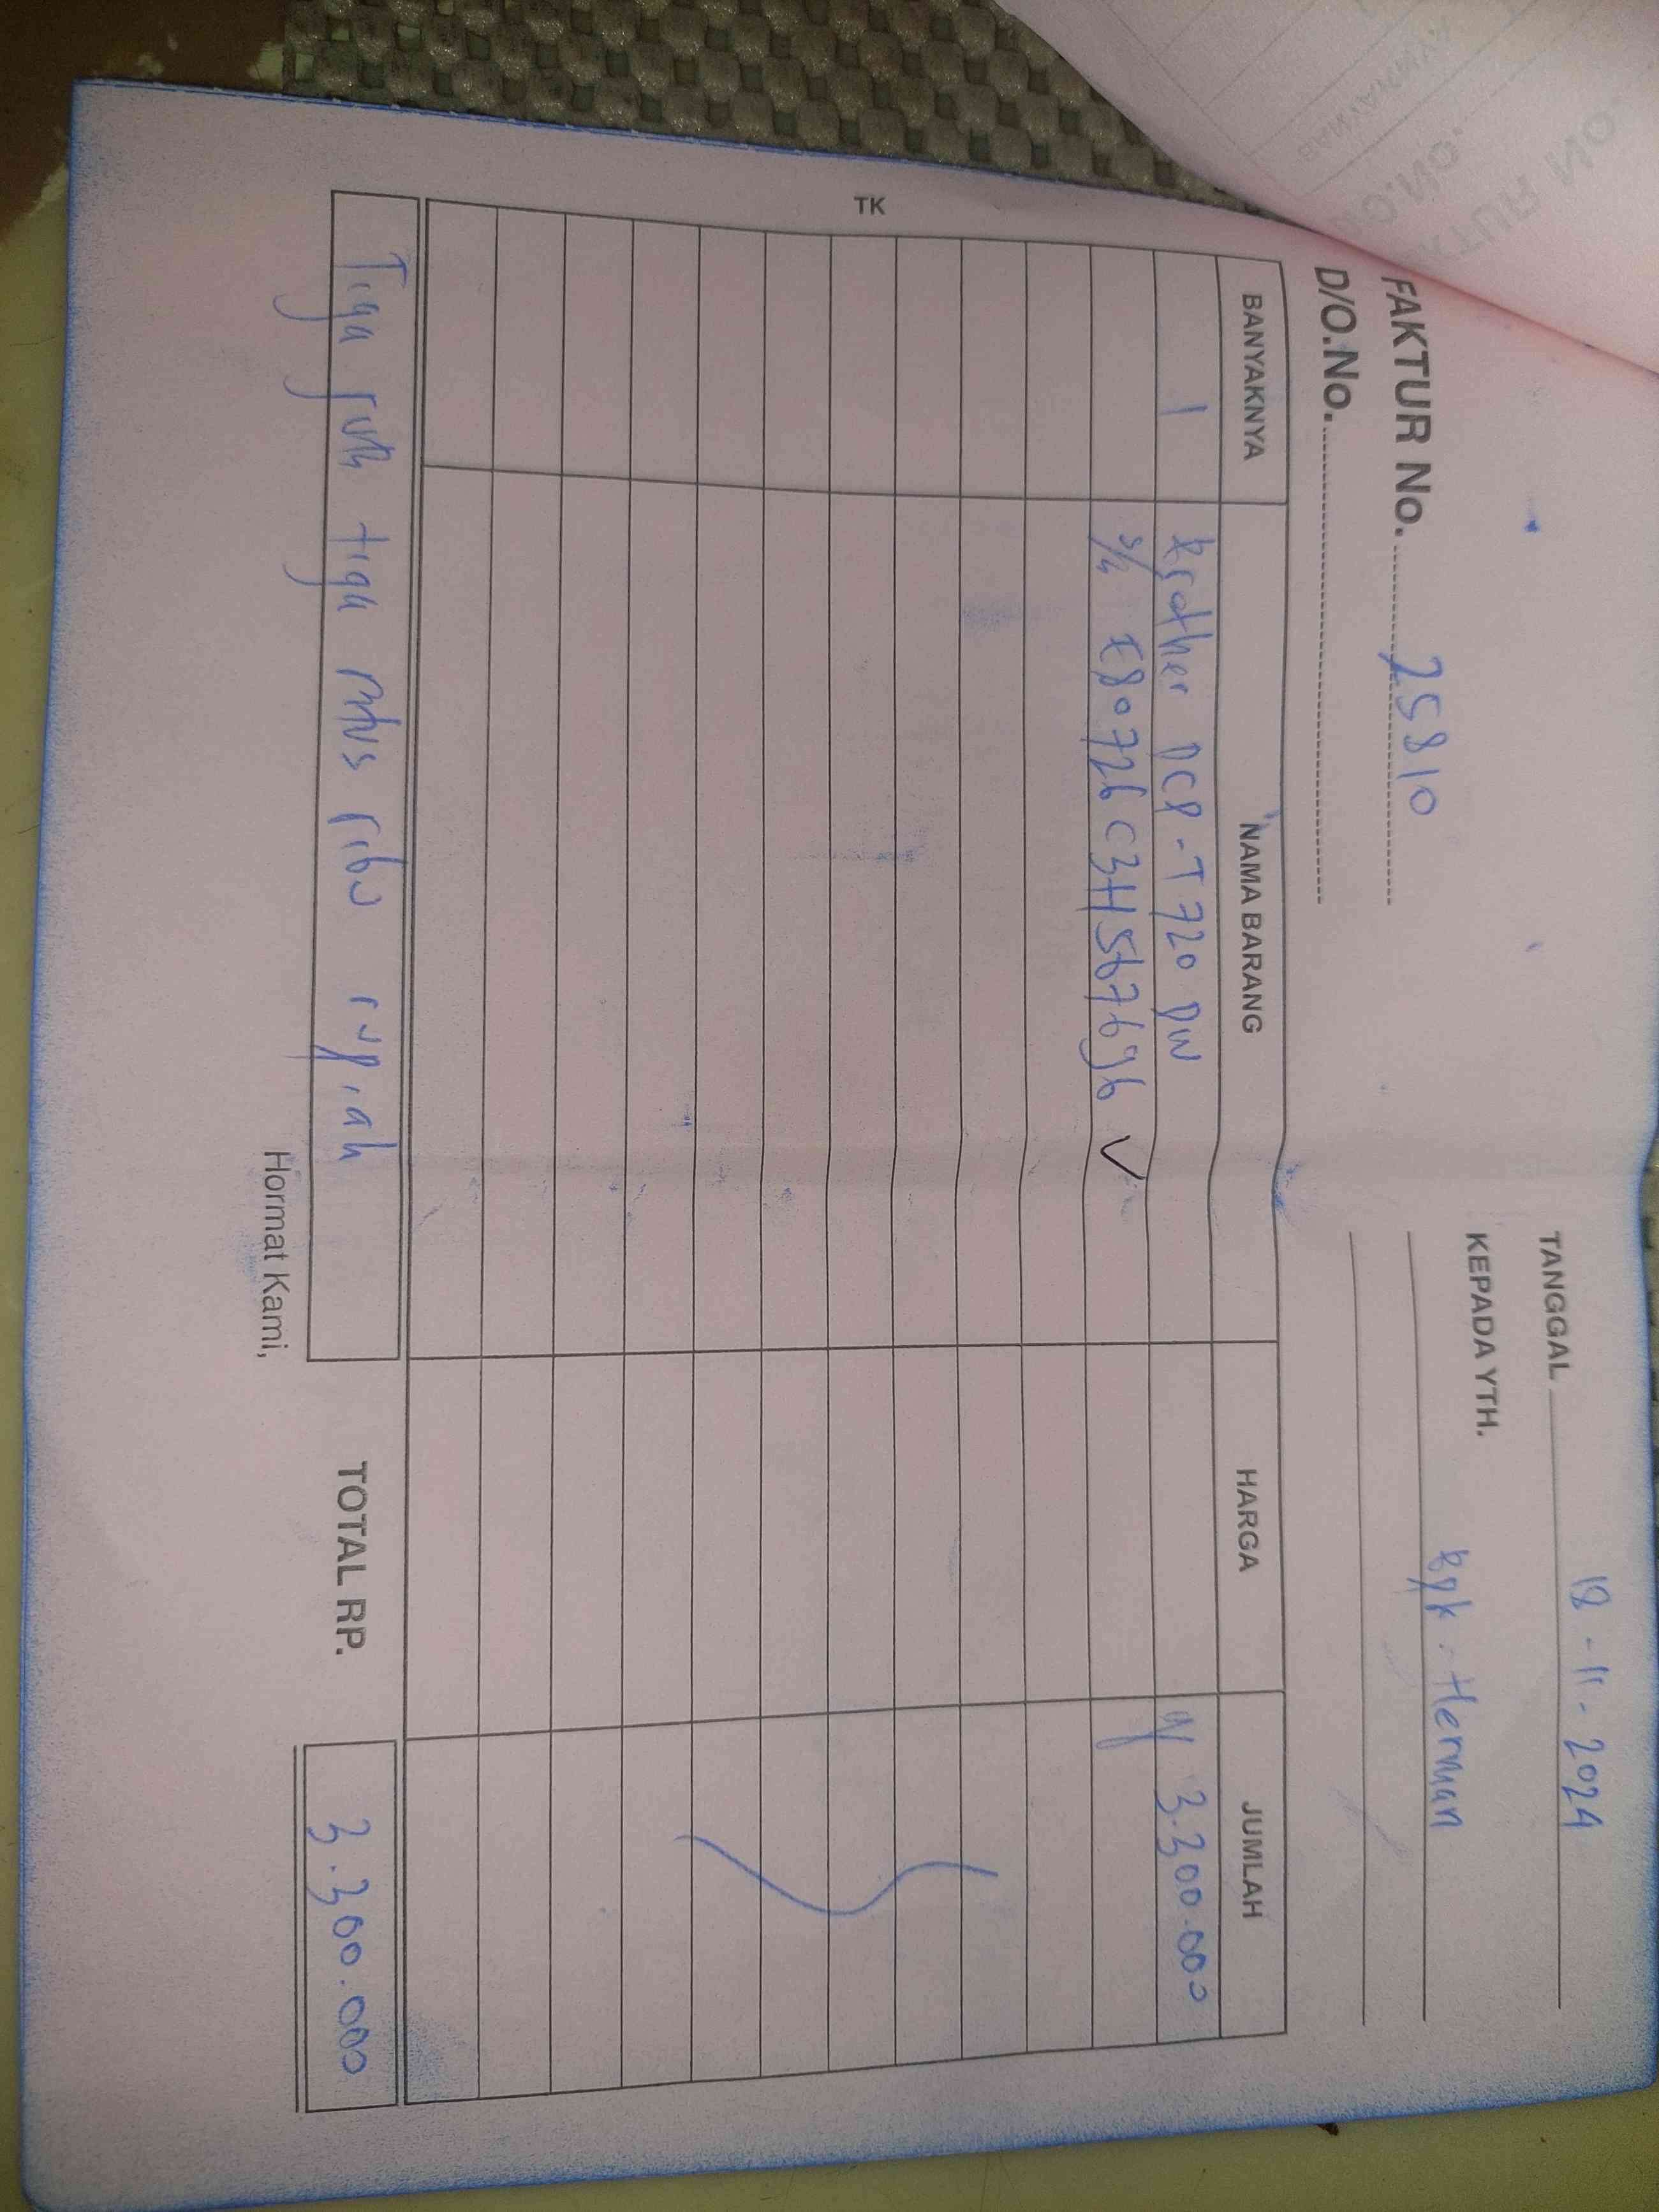 FAKTUR No. 25810
D/O.No.
TANGGAL 18-11-2024
KEPADA YTH.
Bpk. Herman
BANYAKNYA NAMA BARANG HARGA JUMLAH
1 Brother DCP-T720 DW 3.300.000
S/N E80726C3H567696 ✓
TK
Tiga juta tiga ratus ribu rupiah
TOTAL RP. 3.300.000
Hormat Kami,